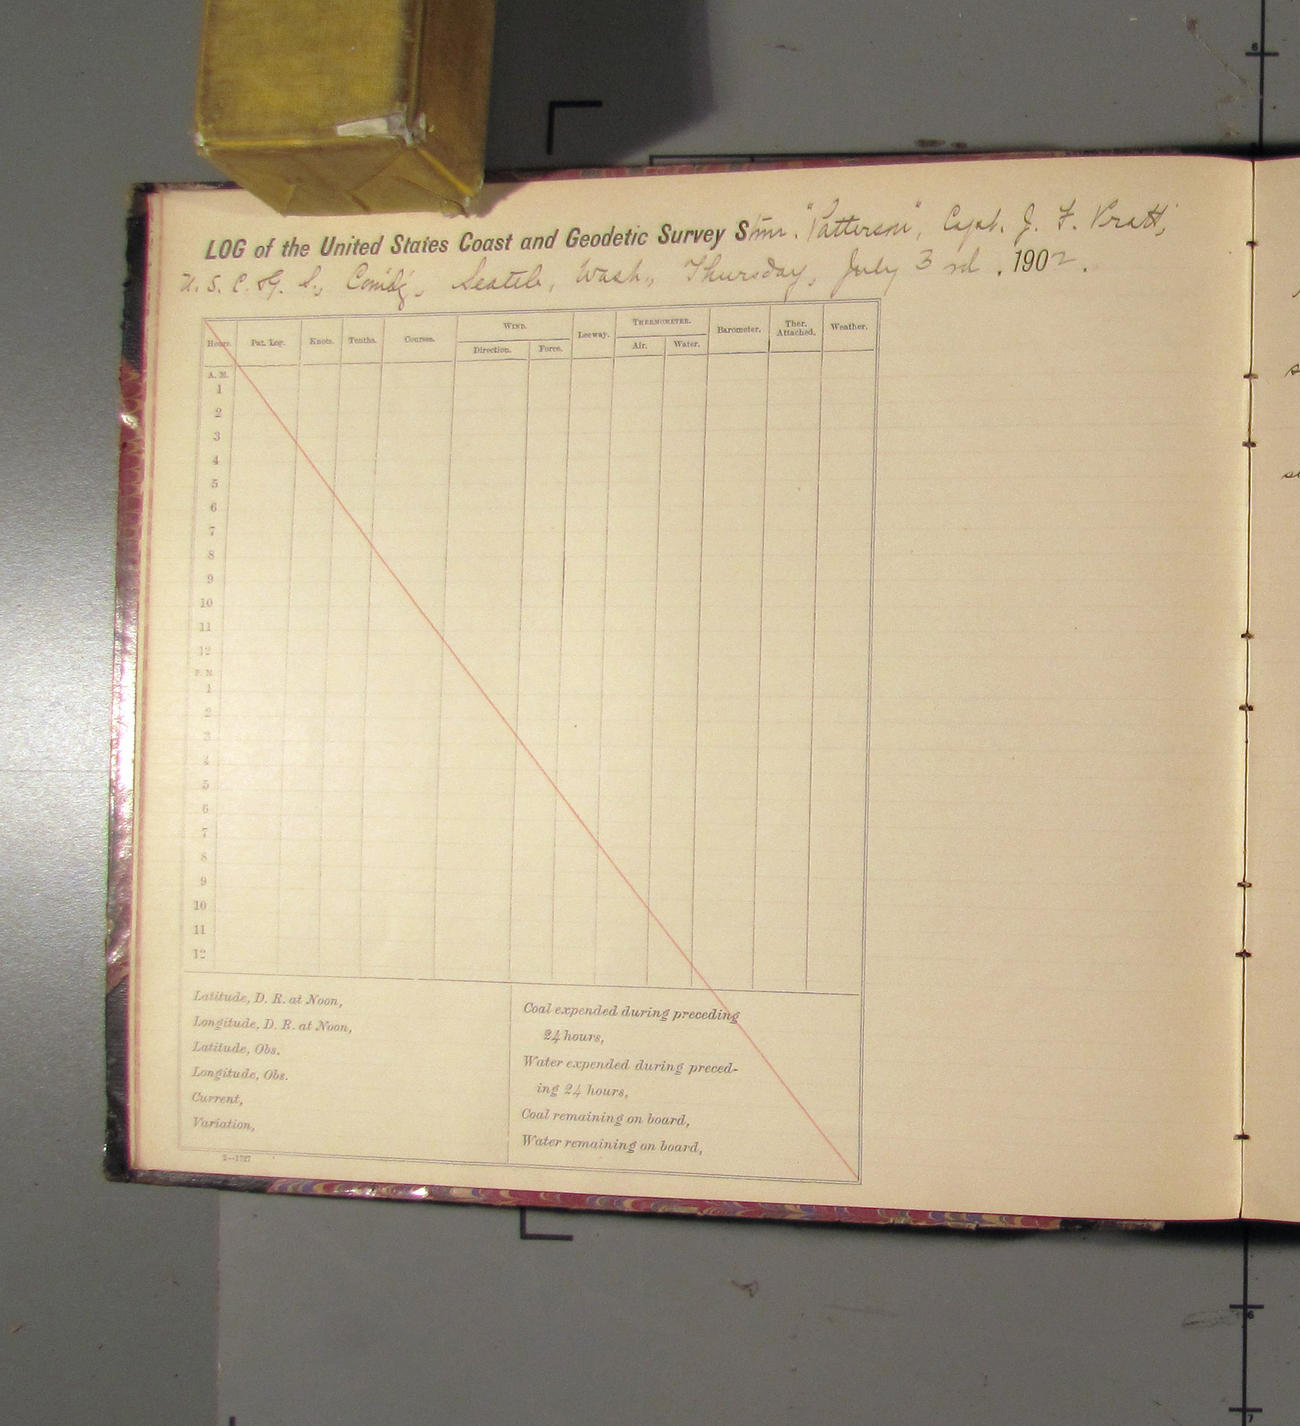 LOG of the United States Coast and Geodetic Survey Stmr. "Patterson", Capt. J. F. Pratt,
U. S. C. & G. S., Comd'g., Seattle, Wash., Thursday, July 3rd, 1902.
Hours. Pat. Log. Knots. Tenths. Courses. WIND. Leeway. THERMOMETER. Barometer. Ther. Attached. Weather.
Direction. Force. Air. Water.
A. M.
1
2
3
4
5
6
7
8
9
10
11
12
P. M.
1
2
3
4
5
6
7
8
9
10
11
12
Latitude, D. R. at Noon,
Longitude, D. R. at Noon,
Latitude, Obs.
Longitude, Obs.
Current,
Variation,
Coal expended during preceding
24 hours,
Water expended during preced-
ing 24 hours,
Coal remaining on board,
Water remaining on board,
2—1727
6
6
7